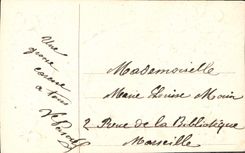 Une
grosse
caresse
à tous
Mademoiselle
Marie Louise Morin
2 Rue de la Bibliotèque
Marseille